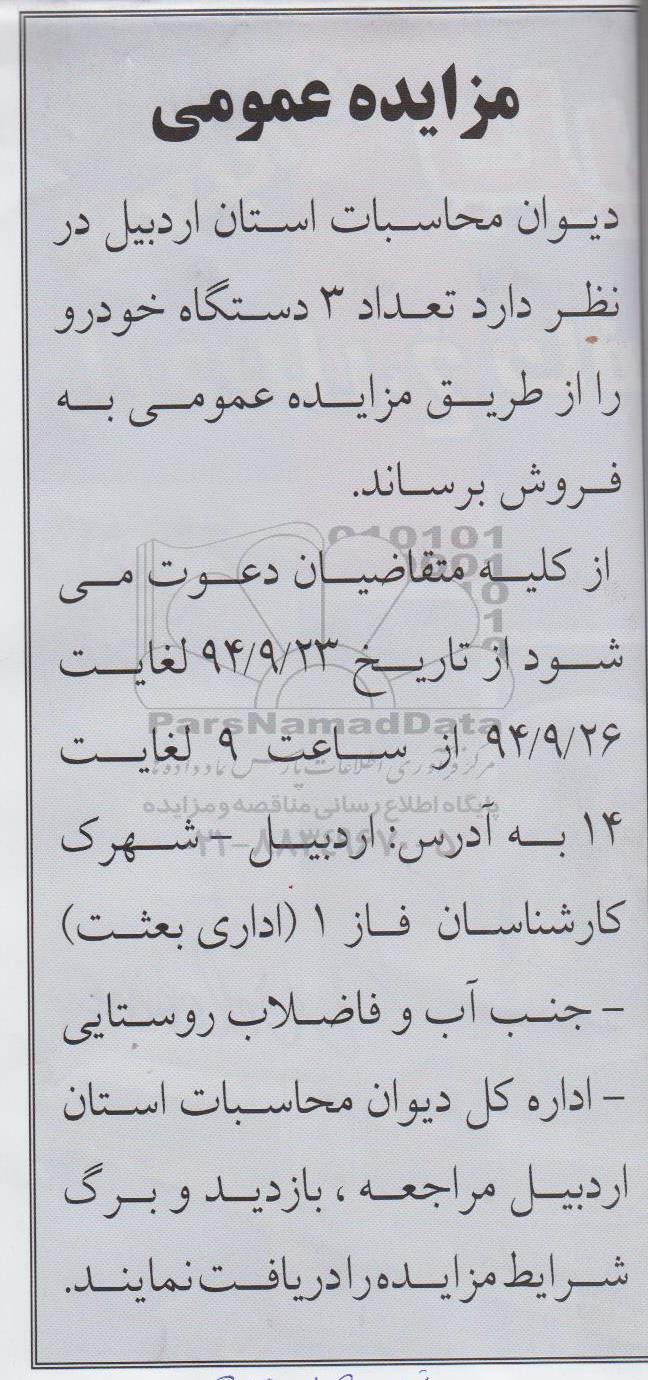 مزایده عمومی
دیوان محاسبات استان اردبیل در
نظر دارد تعداد ۳ دستگاه خودرو
را از طریق مزایده عمومی به
فروش برساند.
از کلیه متقاضیان دعوت می
شود از تاریخ ۹۴/۹/۲۳ لغایت
۹۴/۹/۲۶ از ساعت ۹ لغایت
۱۴ به آدرس: اردبیل – شهرک
کارشناسان فاز ۱ (اداری بعثت)
– جنب آب و فاضلاب روستایی
– اداره کل دیوان محاسبات استان
اردبیل مراجعه ، بازدید و برگ
شرایط مزایده را دریافت نمایند.
ParsNamadData
پایگاه اطلاع رسانی مناقصه و مزایده